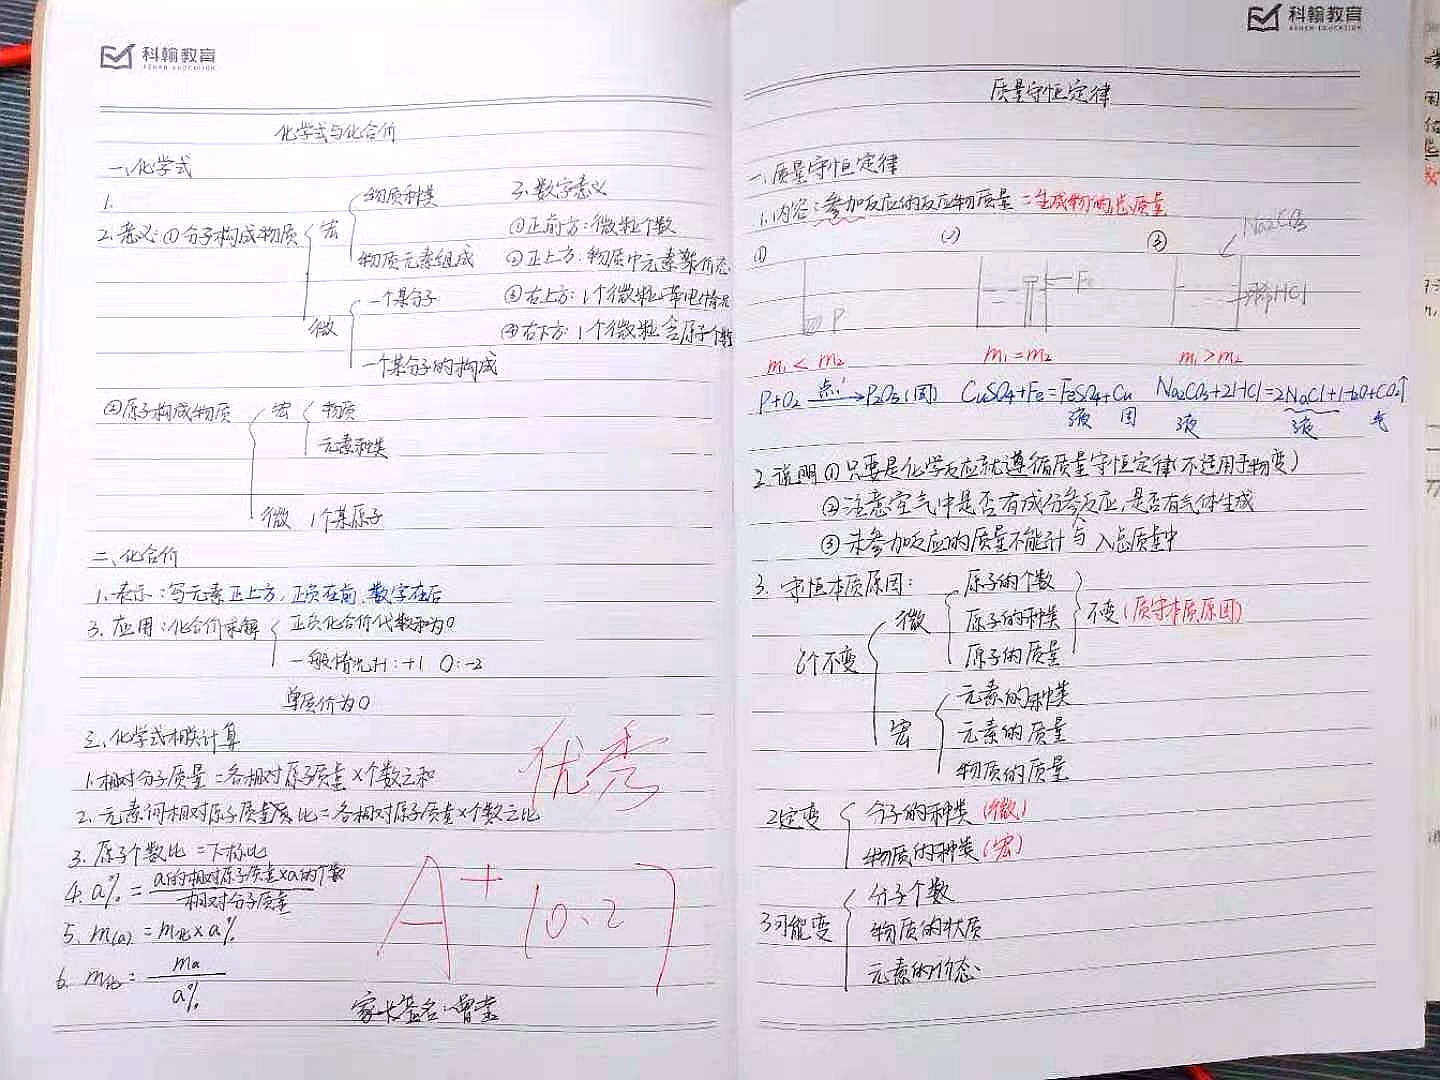 科翰教育
KEHAN EDUCATION
化学式与化合价
一、化学式
1.
2.意义:①分子构成物质
宏
物质种类
物质元素组成
微
一个某分子
一个某分子的构成
3.数字意义
①正前方:微粒个数
②正上方:物质中元素价态
③右上方:1个微粒带电情况
④右下方:1个微粒含原子个数
②原子构成物质
宏
物质
元素种类
微 1个某原子
二、化合价
1.表示:写元素正上方,正负在前,数字在后
3.应用:化合价求解
正负化合价代数和为0
一般情况H:+1 O:-2
单质价为0
三、化学式相关计算
1.相对分子质量=各相对原子质量×个数之和
2.元素间相对原子质量比=各相对原子质量×个数之比
3.原子个数比=下标比
4.a%=a的相对原子质量×a的个数
相对分子质量
5.m(a)=m化×a%
6.m化=ma
a%
优秀
A+
10.27
家长签名:曾
科翰教育
KEHAN EDUCATION
质量守恒定律
一、质量守恒定律
1.内容:参加反应的反应物质量=生成物的总质量
① ② ③
Na2CO3
P
Fe
稀HCl
m1<m2 m1=m2 m1>m2
P+O2 点 → P2O5(固) CuSO4+Fe=FeSO4+Cu Na2CO3+2HCl=2NaCl+H2O+CO2↑
液 固 液 液 气
2.说明①只要是化学反应就遵循质量守恒定律(不适用于物变)
②注意空气中是否有成分参反应,是否有气体生成
③未参加反应的质量不能计与入总质量中
3.守恒本质原因:
6个不变
微
原子的个数
原子的种类
原子的质量
不变(质守本质原因)
宏
元素的种类
元素的质量
物质的质量
2定变
分子的种类(微)
物质的种类(宏)
3可能变
分子个数
物质的状质
元素的价态